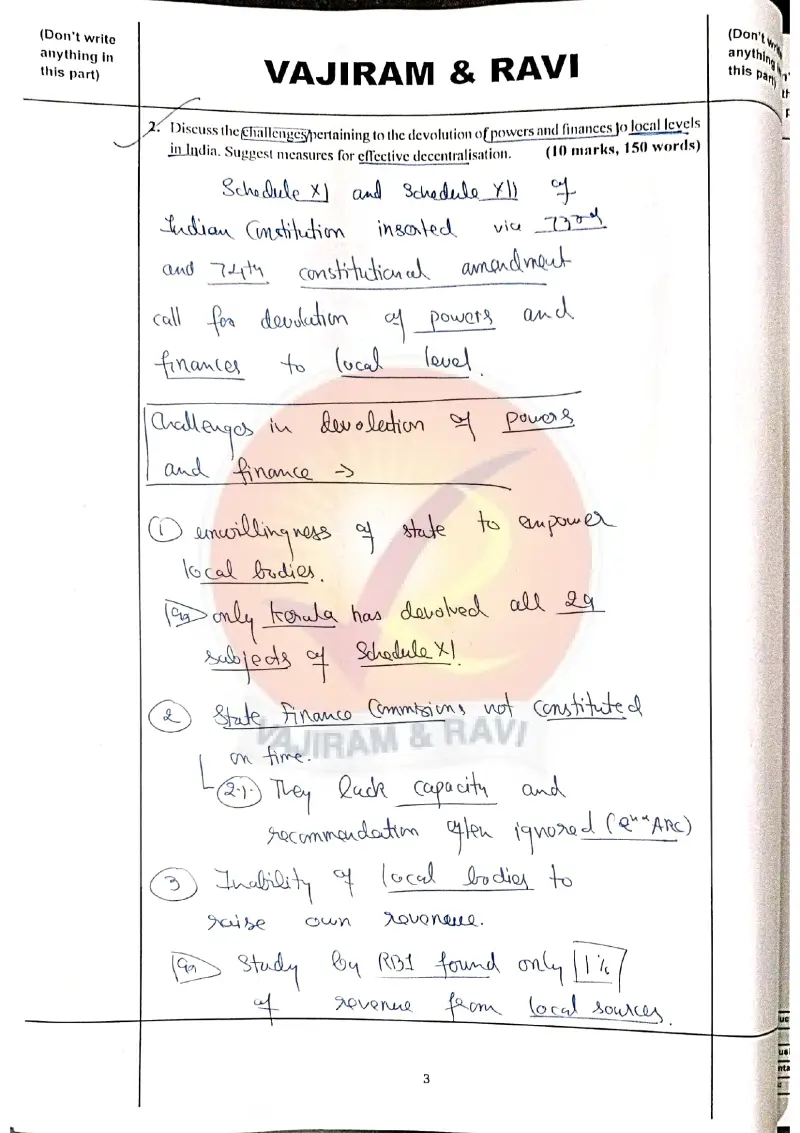 (Don't write
anything in
this part)
VAJIRAM & RAVI
(Don't write
anything in
this part)
2. Discuss the challenges pertaining to the devolution of powers and finances to local levels
in India. Suggest measures for effective decentralisation. (10 marks, 150 words)
Schedule XI and Schedule XII of
Indian Constitution inserted via 73rd
and 74th constitutional amendment
call for devolution of powers and
finances to local level.
Challenges in devolection of powers
and finance →
① unwillingness of state to empower
local bodies.
eg only Kerala has devolved all 29
subjects of Schedule XI.
② State Finance Commissions not constituted
on time.
2.1. They lack capacity and
recommendation often ignored (2nd ARC)
③ Inability of local bodies to
raise own revenue.
eg Study by RBI found only 1%
of revenue from local sources.
VAJIRAM & RAVI
3